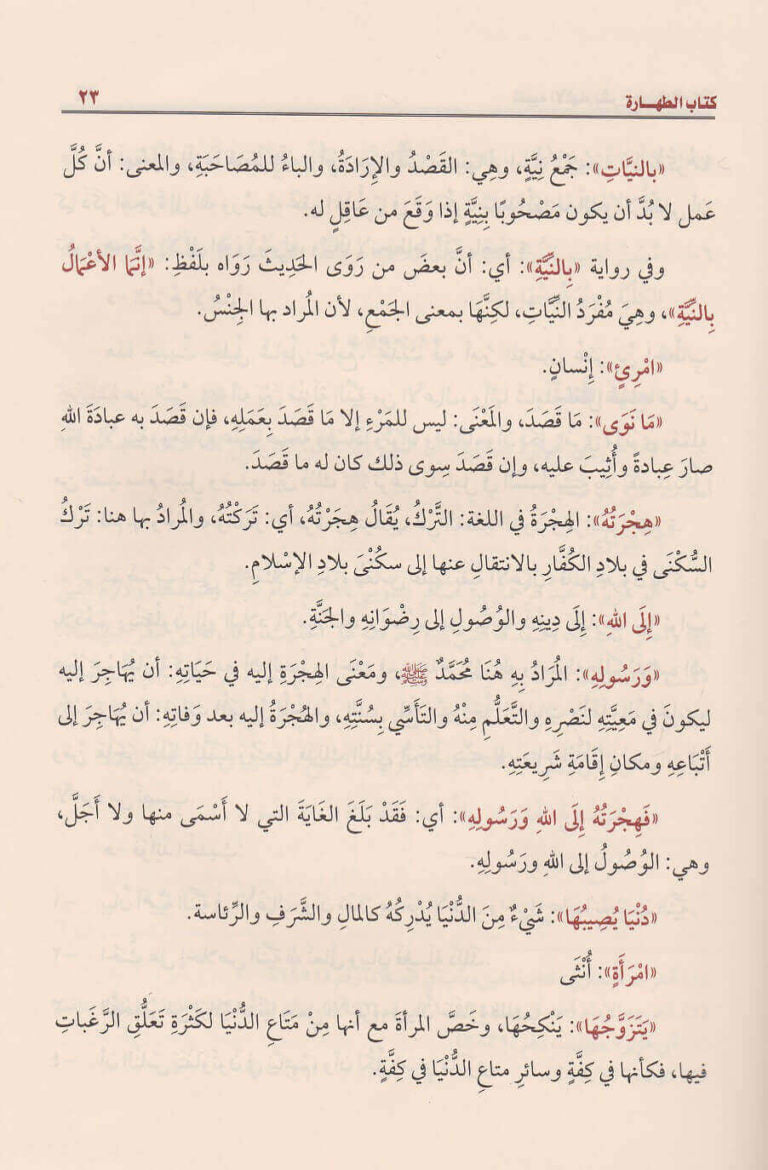 كتاب الطهـــارة ٢٣
«بالنيَّاتِ»: جَمْعُ نِيَّةٍ، وهِي: القَصْدُ والإِرَادَةُ، والباءُ للمُصَاحَبَةِ، والمعنى: أنَّ كُلَّ
عَمل لا بُدَّ أن يكون مَصْحُوبًا بِنِيَّةٍ إذا وَقَعَ من عَاقِلٍ له.
وفي رواية «بِالنِّيَّةِ»: أي: أنَّ بعضَ من رَوَى الحَدِيثَ رَوَاه بلَفْظِ: «إنَّمَا الأعْمَالُ
بِالنِّيَّةِ»، وهِيَ مُفْرَدُ النِّيَّاتِ، لكِنَّهَا بمعنى الجَمْعِ، لأن المُراد بها الجِنْسُ.
«امْرِئٍ»: إِنْسانٍ.
«مَا نَوَى»: مَا قَصَدَ، والمَعْنَى: ليس للمَرْءِ إلا مَا قَصَدَ بِعَمَلِهِ، فإن قَصَدَ به عبادَةَ اللهِ
صارَ عِبادةً وأُثِيبَ عليه، وإن قَصَدَ سِوى ذلك كان له ما قَصَدَ.
«هِجْرَتُهُ»: الهِجْرَةُ في اللغة: التَّرْكُ، يُقَالُ هِجَرْتُهُ، أي: تَرَكْتُهُ، والمُرادُ بها هنا: تَرْكُ
السُّكْنَى في بلادِ الكُفَّارِ بالانتقالِ عنها إلى سكُنْىَ بلادِ الإِسْلامِ.
«إِلَى اللهِ»: إِلَى دِينِهِ والوُصُولِ إلى رِضْوَانِهِ والجَنَّةِ.
«وَرَسُولِهِ»: المُرَادُ بِهِ هُنَا مُحَمَّدٌ ﷺ، ومَعْنَى الهِجْرَةِ إليه في حَيَاتِهِ: أن يُهَاجِرَ إليه
ليكونَ في مَعِيَّتِهِ لنَصْرِهِ والتَّعَلُّمِ مِنْهُ والتَأسِّي بِسُنَّتِهِ، والهُجْرَةُ إليه بعد وَفاتِهِ: أن يُهَاجِرَ إلى
أَتْبَاعِهِ ومكانِ إِقَامَةِ شَرِيعَتِهِ.
«فَهِجْرَتُهُ إِلَى اللهِ وَرَسُولِهِ»: أي: فَقَدْ بَلَغَ الغَايَةَ التي لا أَسْمَى منها ولا أَجَلَّ،
وهي: الوُصُولُ إلى اللهِ ورَسُولِهِ.
«دُنْيَا يُصِيبُهَا»: شَيْءٌ مِنَ الدُّنْيَا يُدْرِكُهُ كالمالِ والشَّرَفِ والرِّئاسة.
«امْرَأَةٍ»: أُنْثَى
«يَتَزَوَّجُهَا»: يَنْكِحُهَا، وخَصَّ المرأةَ مع أنها مِنْ مَتَاعِ الدُّنْيَا لكَثْرَةِ تَعَلُّقِ الرَّغَباتِ
فيها، فكأنها في كِفَّةٍ وسائرِ متاعِ الدُّنْيَا في كِفَّةٍ.